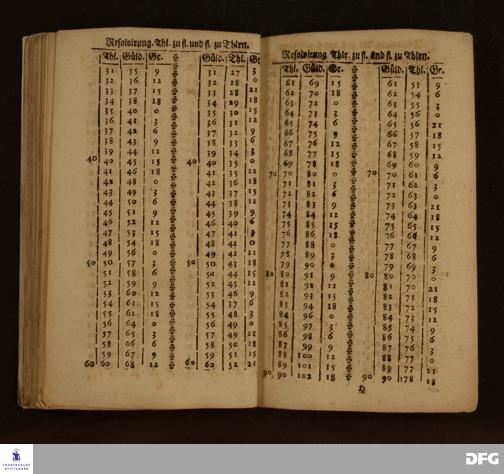 Resolvirung Thl. zu fl. und fl. zu Thlrn.
Thl. Güld. Gr. Güld. Thl. Gr
31 35 9 31 27 3
32 36 12 32 28 0
33 37 15 33 28 21
34 38 18 34 29 18
35 40 0 35 30 15
36 41 3 36 31 12
37 42 6 37 32 9
38 43 9 38 33 6
39 44 12 39 34 3
40 40 45 15 40 40 35 0
41 46 18 41 35 21
42 48 0 42 36 18
43 49 3 43 37 15
44 50 6 44 38 12
45 51 9 45 39 9
46 52 12 46 40 6
47 53 15 47 41 3
48 54 18 48 42 0
49 56 0 49 42 21
50 50 57 3 50 50 43 18
51 58 6 51 44 15
52 59 9 52 45 12
53 60 12 53 46 9
54 61 15 54 47 6
55 62 18 55 48 3
56 64 0 56 49 0
57 65 3 57 49 21
58 66 6 58 50 18
59 67 9 59 51 15
60 60 68 12 60 60 52 12
Resolvirung Thlr. zu fl. und fl. zu Thlrn.
Thl. Güld. Gr. Güld. Thl. Gr.
61 69 15 61 53 9
62 70 18 62 54 6
63 72 0 63 55 3
64 73 3 64 56 0
65 74 6 65 56 21
66 75 9 66 57 18
67 76 12 67 58 15
68 77 15 68 59 12
69 78 18 69 60 9
70 70 80 0 70 70 61 6
71 81 3 71 62 3
72 82 6 72 63 0
73 83 9 73 63 21
74 84 12 74 64 18
75 85 15 75 65 15
76 86 18 76 66 12
77 88 0 77 67 9
78 89 3 78 68 6
79 90 6 79 69 3
80 80 91 9 80 80 70 0
81 92 12 81 70 21
82 93 15 82 71 18
83 94 18 83 72 15
84 96 0 84 73 12
85 97 3 85 74 9
86 98 6 86 75 6
87 99 9 87 76 3
88 100 12 88 77 0
89 101 15 89 77 21
90 90 102 18 90 90 178 18
FRANCKESCHE STIFTUNGEN
DFG